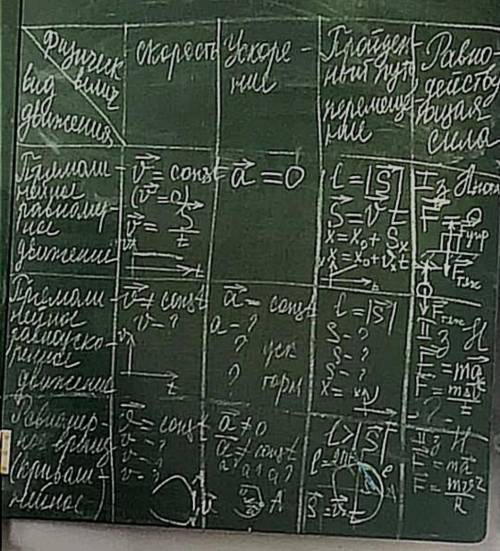 Физическ
велич
вид
движения
скорость
Ускоре-
ние
Пройден-
ный путь
перемеще-
ние
Равно-
действ
ующая
сила
Прямоли-
нейное
равномер-
ное
движение
v⃗ = const
(v⃗ = 0)
v⃗ = S⃗/t
a⃗ = 0
l = |S⃗|
S⃗ = v⃗ t
x = x₀ + Sₓ
x = x₀ + vₓt
I з Ньют
F⃗ = 0
F⃗упр
F⃗тяж
F⃗тяж
Прямоли-
нейное
движение
v⃗ ≠ const
v = ?
v
t
a⃗ = const
a - ?
? уск
? торм
l = |S⃗|
S = ?
S = ?
S = ?
x =
II з Н
F⃗ = ma⃗
F = mΔv/t
?
Равномер-
ное
v = const
v = ?
v = ?
v = ?
a⃗ ≠ 0
a⃗ ≠ const
a? a? a?
A
l > |S⃗|
II з Н
F⃗ = ma⃗
F = mv²/R